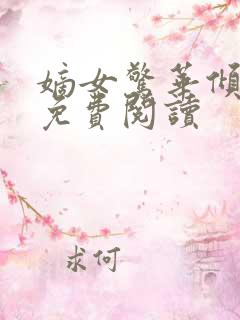 嫡女驚華傾
免費閱讀
求何